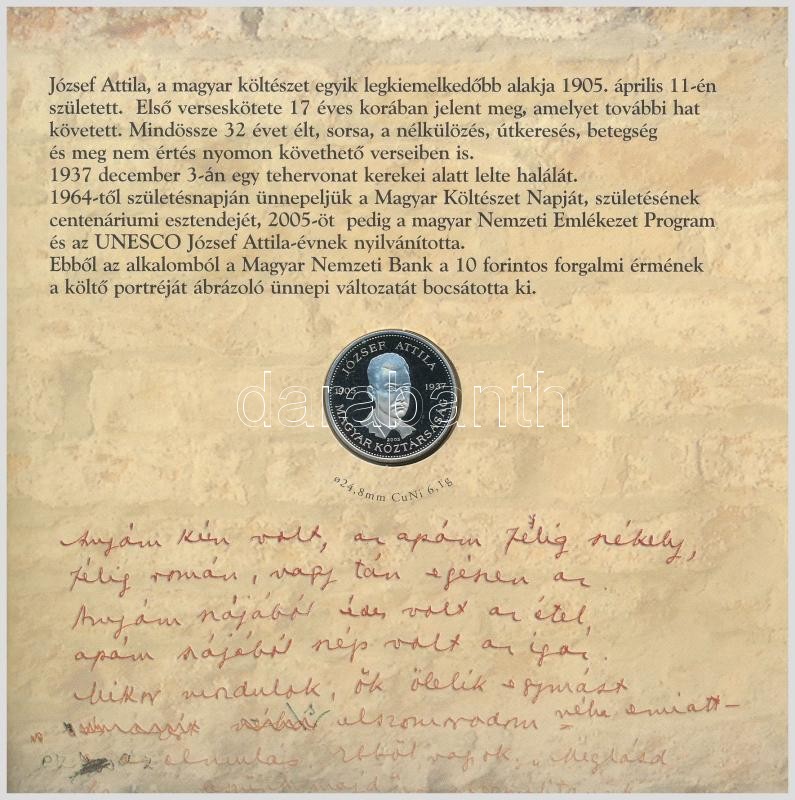 József Attila, a magyar költészet egyik legkiemelkedőbb alakja 1905. április 11-én
született. Első verseskötete 17 éves korában jelent meg, amelyet további hat
követett. Mindössze 32 évet élt, sorsa, a nélkülözés, útkeresés, betegség
és meg nem értés nyomon követhető verseiben is.
1937 december 3-án egy tehervonat kerekei alatt lelte halálát.
1964-től születésnapján ünnepeljük a Magyar Költészet Napját, születésének
centenáriumi esztendejét, 2005-öt pedig a magyar Nemzeti Emlékezet Program
és az UNESCO József Attila-évnek nyilvánította.
Ebből az alkalomból a Magyar Nemzeti Bank a 10 forintos forgalmi érmének
a költő portréját ábrázoló ünnepi változatát bocsátotta ki.
JÓZSEF ATTILA
1905 1937
darabanth
2005
MAGYAR KÖZTÁRSASÁG
ø24,8mm CuNi 6,1g
Anyám kún volt, az apám félig székely,
félig román, vagy tán egészen az.
Anyám szájából édes volt az étel,
apám szájából szép volt az igaz.
Mikor mozdulok, ők ölelik egymást
elszomorodom néha emiatt –
ez az elmulás. Ebből vagyok. "Meglásd